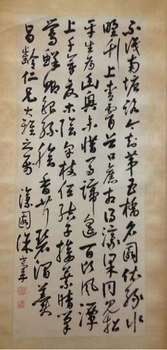 不識南塘路今知第五橋名園依綠水
野竹上青霄谷口舊相得濠梁同見招
平生為幽興未惜馬蹄遙百頃風潭
上千章夏木清卑枝低結子接葉暗巢
鶯鮮鯽銀絲膾香芹碧澗羹
昌齡仁兄大雅之